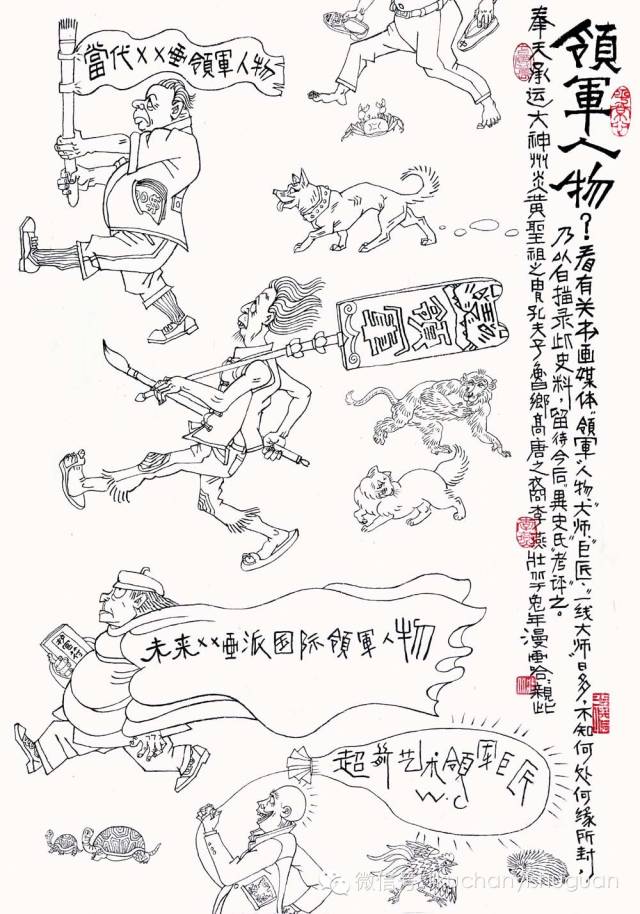 領軍人物？看有关书画媒体"領軍"人物、"大师"、"巨匠"、"一线大师"日多，不知何处何缘所封，
乃以白描录此史料，留待今后"異史氏"考评之。
奉天承运大神州炎黄聖祖之胄孔夫子魯鄉高唐之裔李燕壯 于兔年漫画哈 親此
當代××画領軍人物
領軍
未来××画派国际領軍人物
超前艺术領軍巨匠
W.C
微信 chanyishuguan